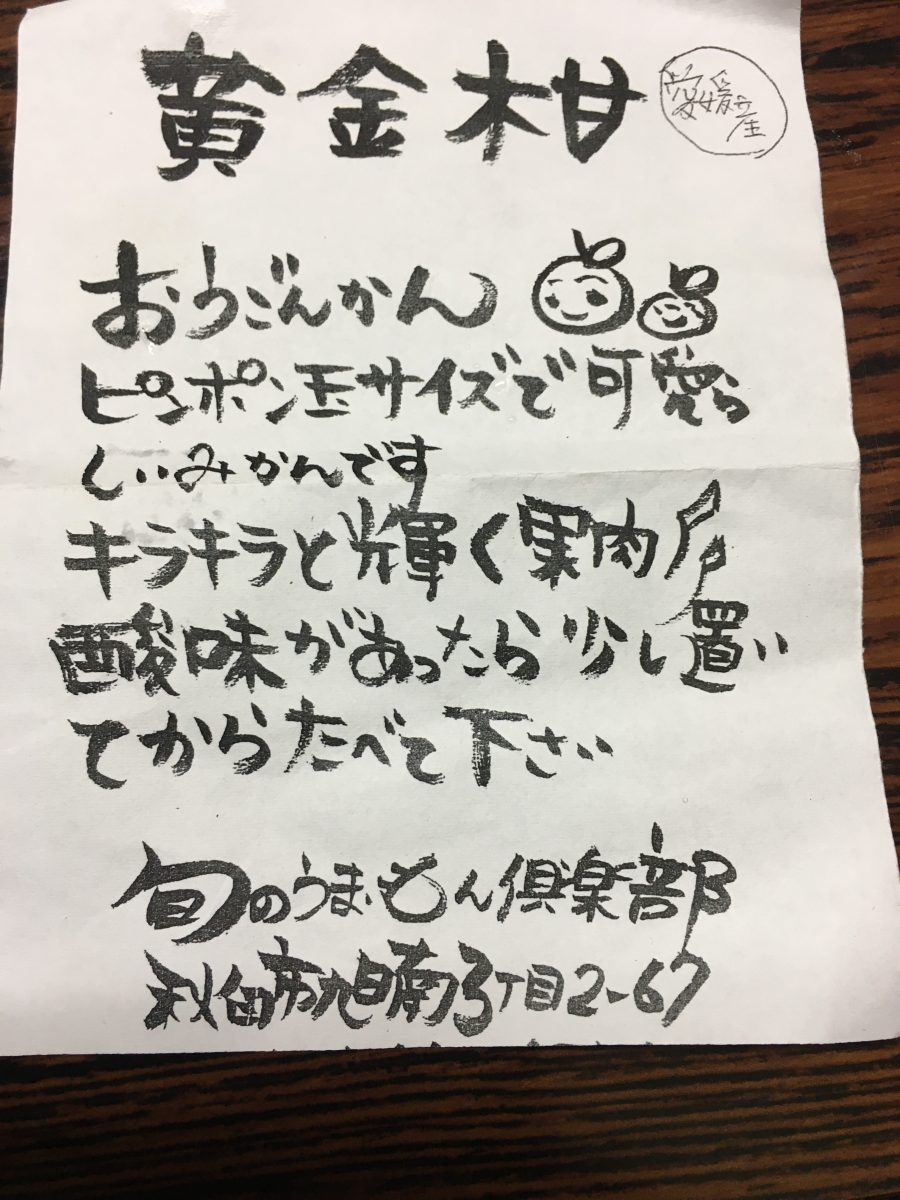 黄金柑
愛媛産
おうごんかん
ピンポン玉サイズで可愛ら
しいみかんです
キラキラと輝く果肉
酸味があったら少し置い
てからたべて下さい
旬のうまいもん倶楽部
秋田市旭南3丁目2-67